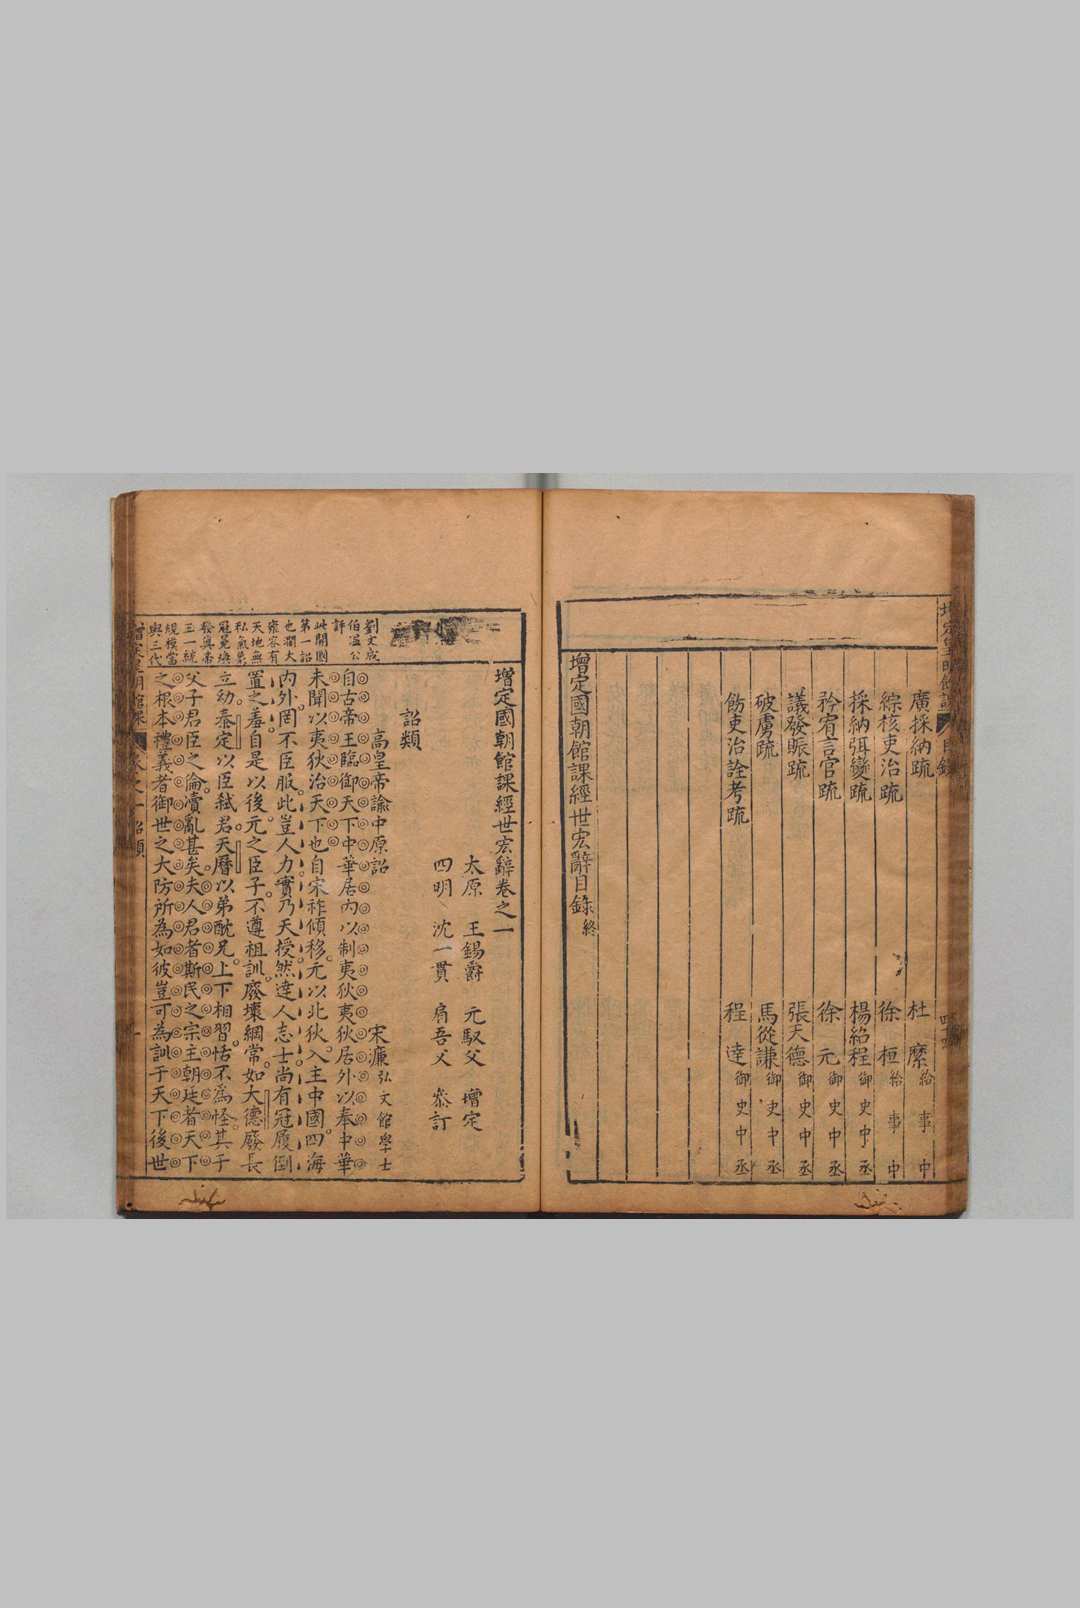 廣採納疏 杜縻給事中
綜核吏治疏 徐桓給事中
採納弭變疏 楊紹程御史中丞
矜宥言官疏 徐元御史中丞
議發賑疏 張天德御史中丞
破虜疏 馬從謙御史中丞
飭吏治詮考疏 程達御史中丞
增定國朝館課經世宏辭目錄終
增定國朝館課經世宏辭卷之一
太原 王錫爵 元馭父 增定
四明 沈一貫 肩吾父 叅訂
詔類
高皇帝諭中原詔 宋濂弘文館學士
劉文成
伯溫公
評
此開國
第一詔
也濶大
雍容有
天地無
私氣象
冠冕煥
發真帝
王一統
規模當
與三代
自古帝王臨御天下中華居内以制夷狄夷狄居外以奉中華
未聞以夷狄治天下也自宋祚傾移元以北狄入主中國四海
内外罔不臣服此豈人力實乃天授然達人志士尚有冠履倒
置之羞自是以後元之臣子不遵祖訓廢壞綱常如大德廢長
立幼泰定以臣弒君天曆以弟酖兄上下相習恬不為怪其于
父子君臣之倫瀆亂甚矣夫人君者斯民之宗主朝廷者天下
之根本禮義者御世之大防所為如彼豈可為訓于天下後世